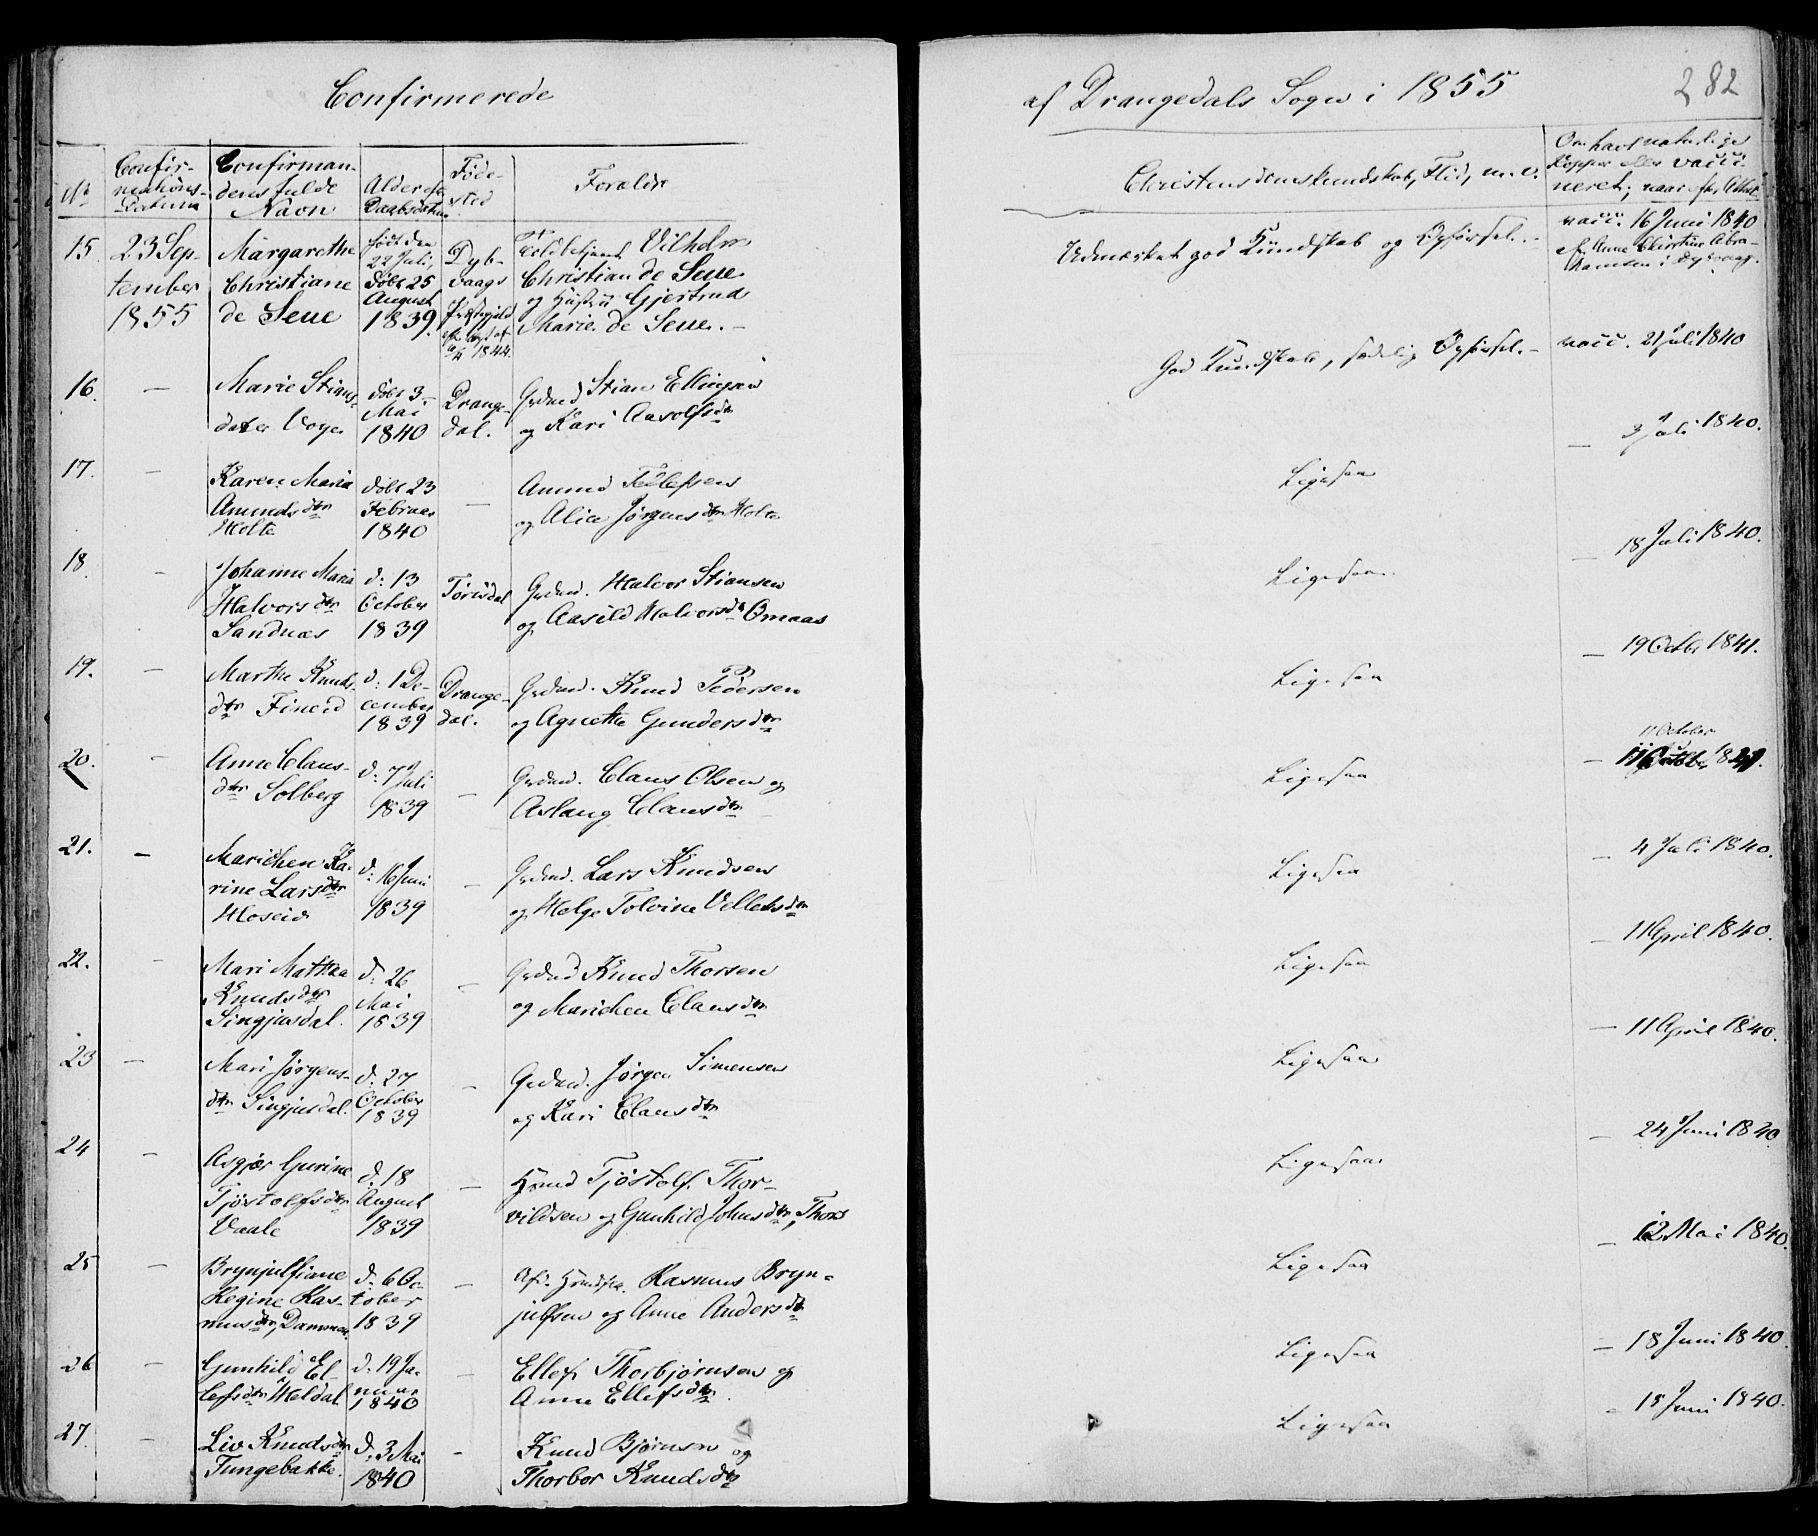 Confirmerede
af Drangedals Sogn i 1855
282
No
Confir-
mations-
Datum
Confirman-
dens fulde
Navn
Alder efter
Daabsdatum
Føde-
sted
Forældre
Christendomskundskab, Flid, m.v.
Om havt naturlige
Kopper eller vacci-
neret; naar efter Attest
15.
23 Sep-
tember
1855
Margarethe
Christiane
de Seue
født den
22 Juli,
døbt 25
August
1839.
Dyb-
vaags
Præstegjeld
1844.
Toldbetjent Vilhelm
Christian de Seue
og Hustru Gjertrud
Marie de Seue.
Udmærket god Kundskab og Opførsel.
vacc. 16 Juni 1840
af Anne Christine Abra-
hamsen i Dybvaag.
16.
—
Marie Stians-
dater Voje
døbt 3
Mai
1840
Drange-
dal.
Grdmd Stian Ellingsen
og Kari Aasolfsdtr
God Kundskab, sædelig Opførsel.
vacc. 21 Juli 1840
17.
—
Karen Maria
Amundsdtr
Holte
døbt 23
Februar
1840
—
Amund Tellefsen
og Alice Jørgensdtr Holte
Ligesaa
— 3 Juli 1840.
18.
—
Johanne Maria
Halvorsdtr
Sandnæs
d: 13
October
1839
Tørisdal
Grdmd. Halvor Stiansen
og Aasild Halvorsdr Omaas
Ligesaa
— 18 Juli 1840.
19.
—
Marthe Knuds-
dtr Fineid
d: 1 De-
cember
1839
Drange-
dal.
Grdmd. Knud Pedersen
og Agnethe Gundersdtr
Ligesaa
— 19 Octbr 1841.
20.
—
Anne Claus-
dtr Solberg
d: 7 Juli
1839
—
Grdmd. Claus Olsen og
Aslaug Clausdtr
Ligesaa
11 October
— 11 Octbr 1841.
21.
—
Marichen Ka-
rine Larsdtr
Hoseid
d: 16 Juni
1839
—
Grdmd. Lars Knudsen
og Helge Tolvine Vellehsdtr
Ligesaa
— 4 Juli 1840.
22.
—
Mari Mathea
Knudsdtr
Singjusdal.
d: 26
Mai
1839
—
Grdmd Knud Thorsen
og Marichen Clausdtr
Ligesaa
— 11 April 1840.
23
—
Mari Jørgens-
dtr Singjusdal.
d: 27
October
1839
—
Grdmd. Jørgen Simensen
og Kari Clausdtr
Ligesaa
— 11 April 1840.
24
—
Asgjær Gurine
Tjøstolfsdtr
Vaale
d: 18
August
1839
—
Hsmd Tjøstolf Thor-
vildsen og Gunhild Johnsdtr, Thors
Ligesaa
— 24 Juni 1840.
25
—
Brynjulfiane
Regine Ras-
musdtr, Dammen.
d: 6 Oc-
tober
1839
—
Rasmus Bryn-
julfsen og Anne Andersdtr
Ligesaa
— 12 Mai 1840.
26
—
Gunhild El-
lefsdtr Heldal
d: 19 Ja-
nuar
1840
—
Ellef Thorbjørnsen og
Anne Ellefsdtr.
Ligesaa
— 18 Juni 1840.
27.
—
Liv Knudsdtr
Tungebakke.
d. 3 Mai
1840
—
Knud Bjørnsen og
Thorbor Knudsdtr
Ligesaa
— 15 Juni 1840.